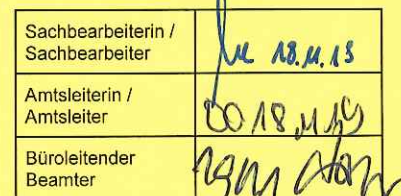 Sachbearbeiterin /
Sachbearbeiter
18.11.13
Amtsleiterin /
Amtsleiter
18.11.13
Büroleitender
Beamter